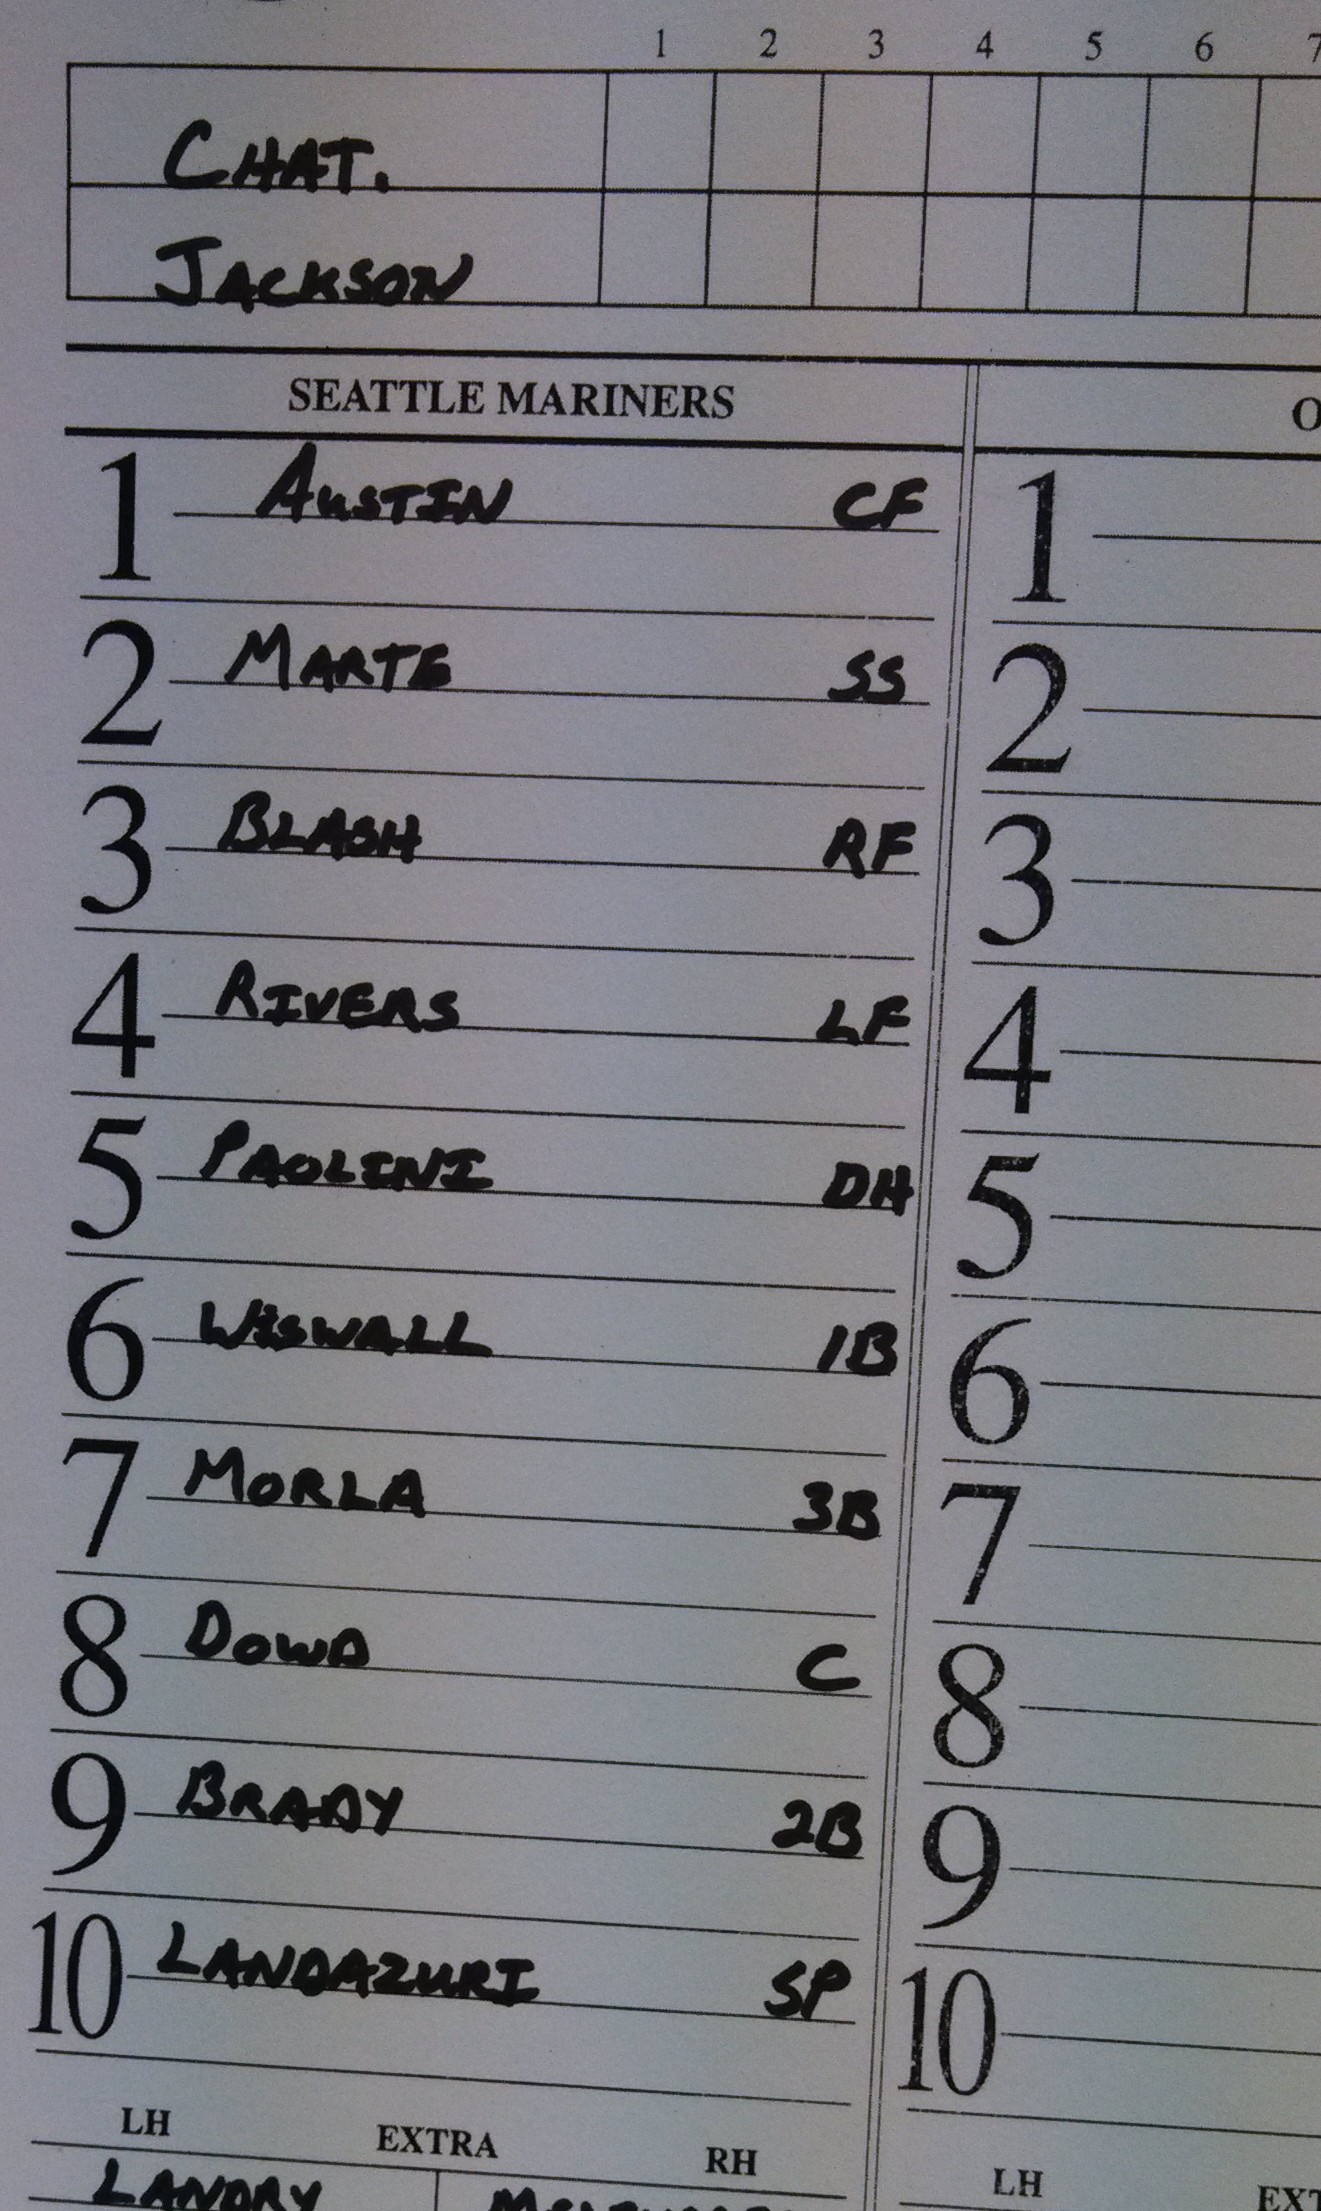 1 2 3 4 5 6 7
CHAT.
JACKSON
SEATTLE MARINERS
1 AUSTIN CF 1
2 MARTE SS 2
3 BLASH RF 3
4 RIVERS LF 4
5 PAOLINI DH 5
6 WISWALL 1B 6
7 MORLA 3B 7
8 DOWD C 8
9 BRADY 2B 9
10 LANDAZURI SP 10
LH EXTRA RH LH EXT
LANDRY